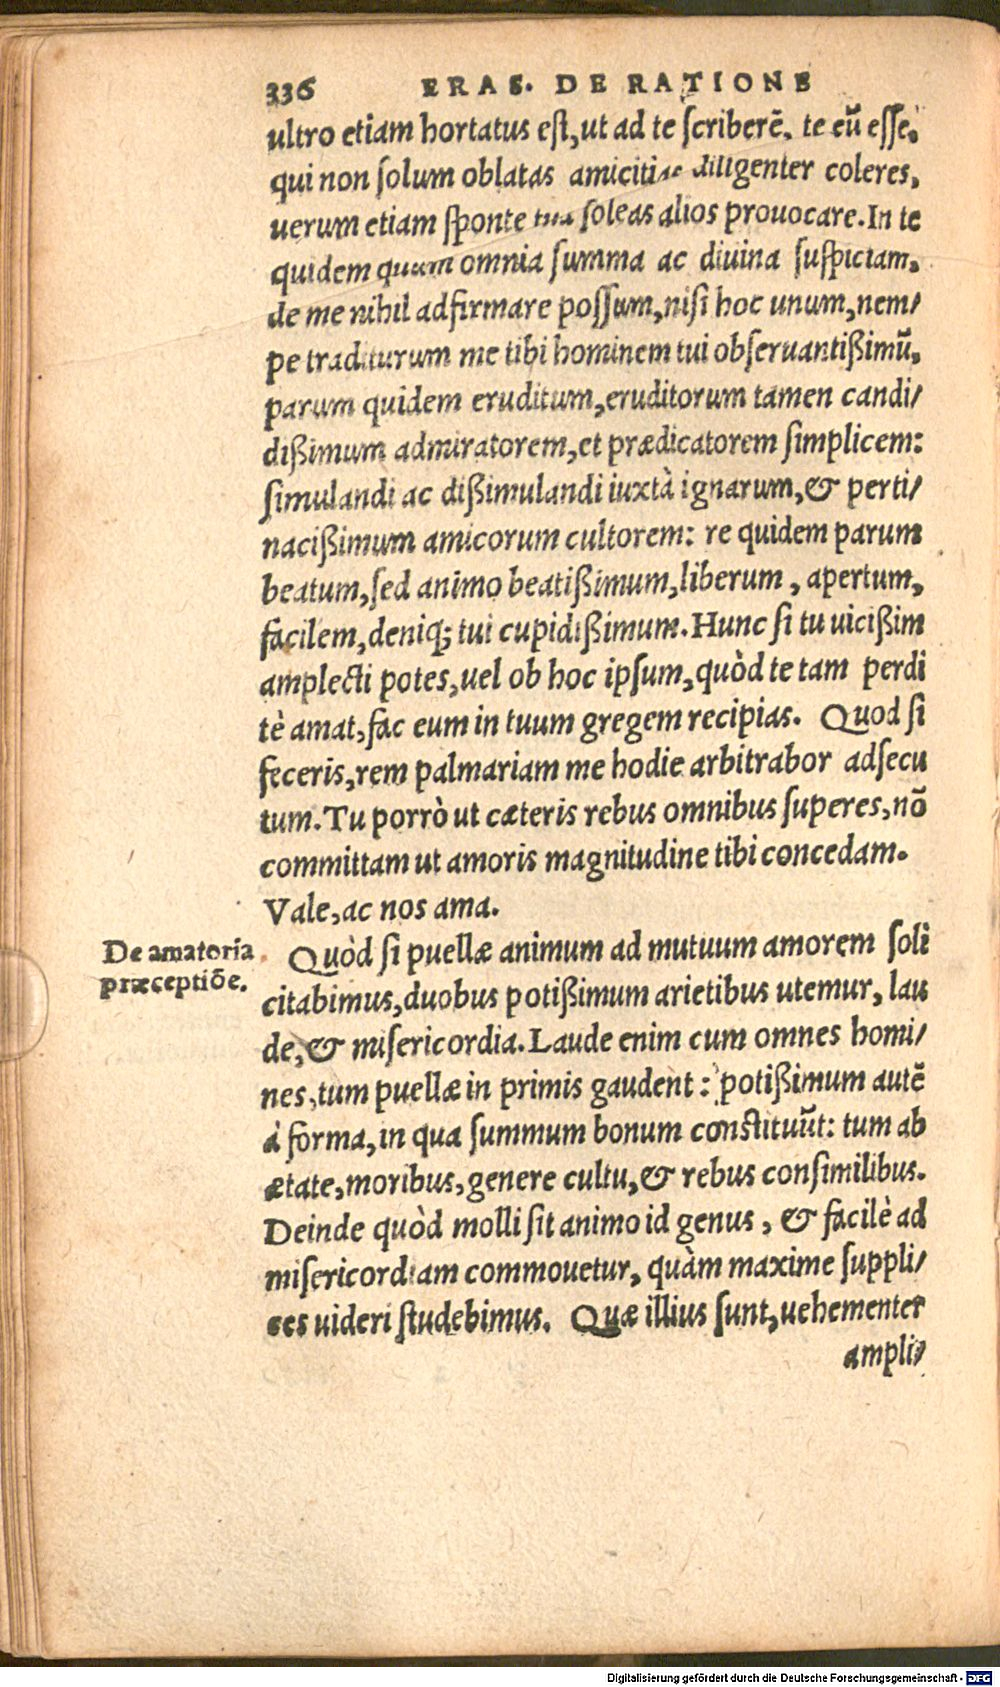 336 ERAS. DE RATIONE
ultro etiam hortatus est, ut ad te scriberē. te eū esse,
qui non solum oblatas amicitias diligenter coleres,
uerum etiam sponte tua soleas alios prouocare. In te
quidem quum omnia summa ac diuina suspiciam,
de me nihil adfirmare possum, nisi hoc unum, nem/
pe traditurum me tibi hominem tui obseruantißimū,
parum quidem eruditum, eruditorum tamen candi/
dißimum admiratorem, et prædicatorem simplicem:
simulandi ac dißimulandi iuxtà ignarum, & perti/
nacißimum amicorum cultorem: re quidem parum
beatum, sed animo beatißimum, liberum, apertum,
facilem, deniq; tui cupidißimum. Hunc si tu uicißim
amplecti potes, uel ob hoc ipsum, quòd te tam perdi
tè amat, fac eum in tuum gregem recipias. Quod si
feceris, rem palmariam me hodie arbitrabor adsecu
tum. Tu porrò ut cæteris rebus omnibus superes, nō
committam ut amoris magnitudine tibi concedam.
Vale, ac nos ama.
De amatoria
præceptiōe.
Quòd si puellæ animum ad mutuum amorem soli
citabimus, duobus potißimum arietibus utemur, lau
de, & misericordia. Laude enim cum omnes homi/
nes, tum puellæ in primis gaudent: potißimum autē
à forma, in qua summum bonum constituūt: tum ab
ætate, moribus, genere cultu, & rebus consimilibus.
Deinde quòd molli sit animo id genus, & facilè ad
misericordiam commouetur, quàm maxime suppli/
ces uideri studebimus. Quæ illius sunt, uehementer
ampli/
Digitalisierung gefördert durch die Deutsche Forschungsgemeinschaft - DFG